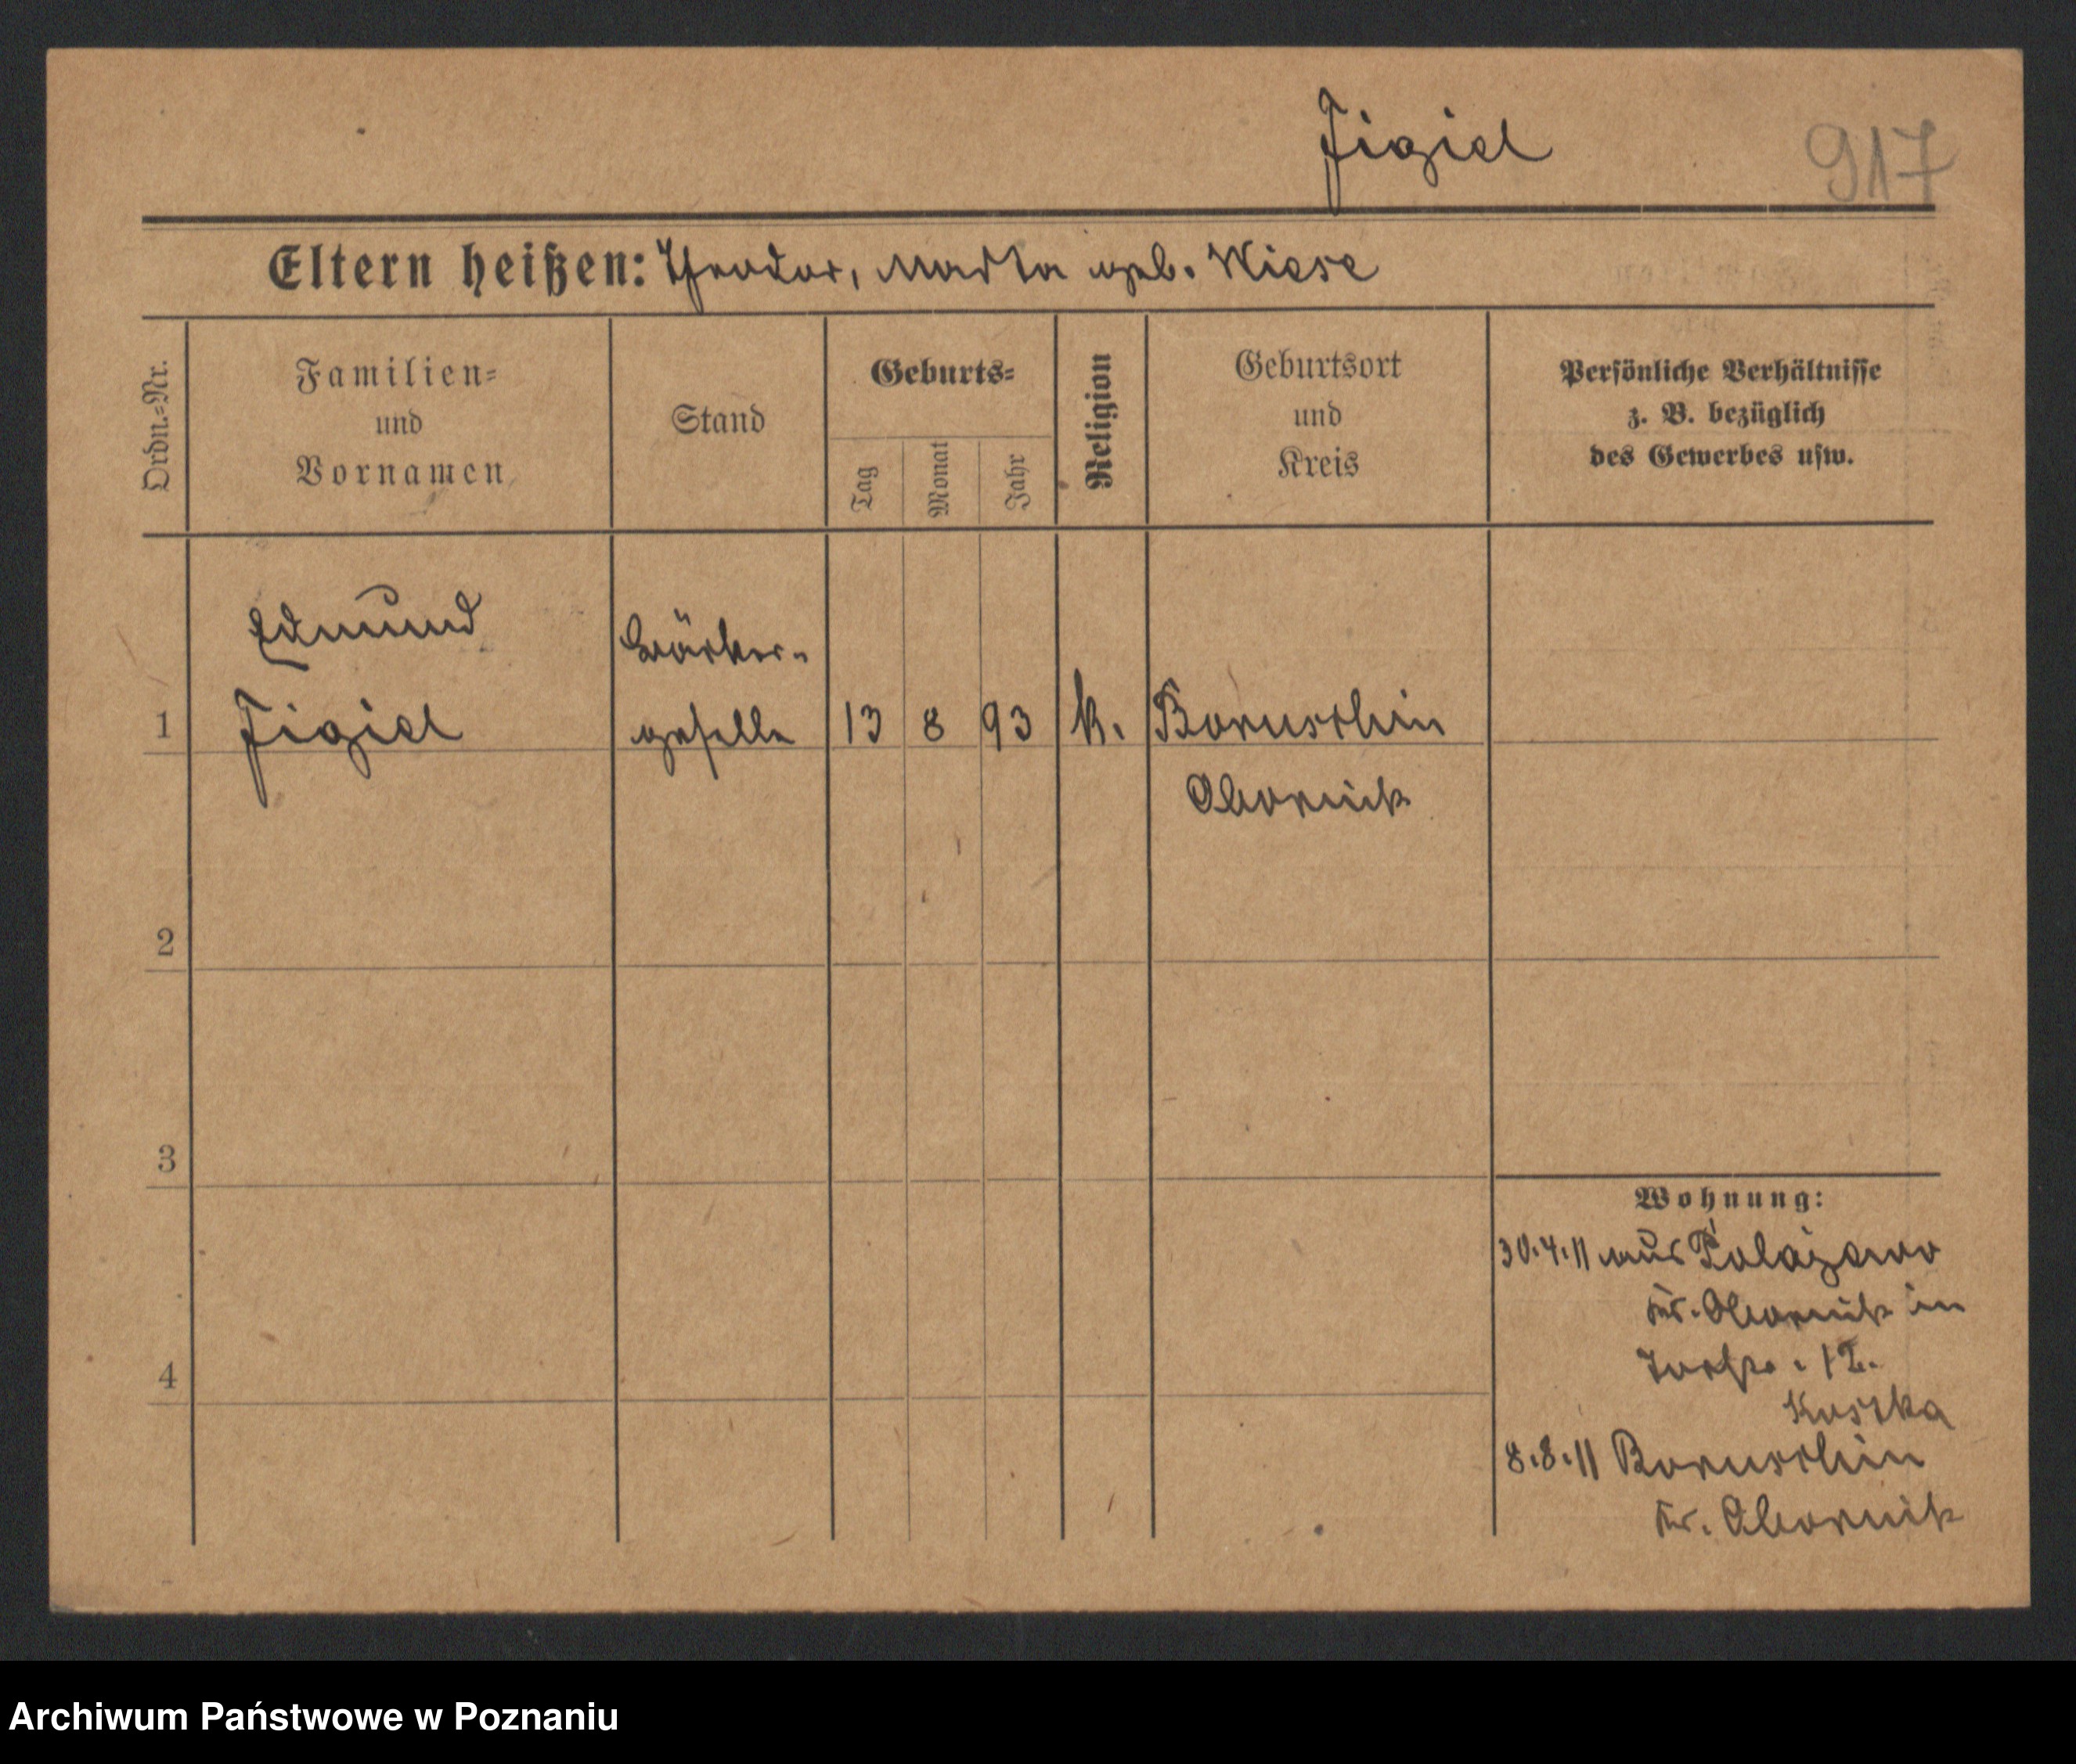 Figiel
917
Eltern heißen: Theodor, Martha geb. Wiese
Ordn.=Nr.
Familien=
und
Vornamen
Stand
Geburts=
Tag
Monat
Jahr
Religion
Geburtsort
und
Kreis
Persönliche Verhältnisse
z. B. bezüglich
des Gewerbes usw.
Edmund
Bäcker-
1 Figiel geselle 13 8 93 k. Boruschin
Obornik
2
3
4
Wohnung:
30.4.11 aus Polajewo
Kr. Obornik in
12.
8.8.11 Boruschin
Kr. Obornik
Archiwum Państwowe w Poznaniu